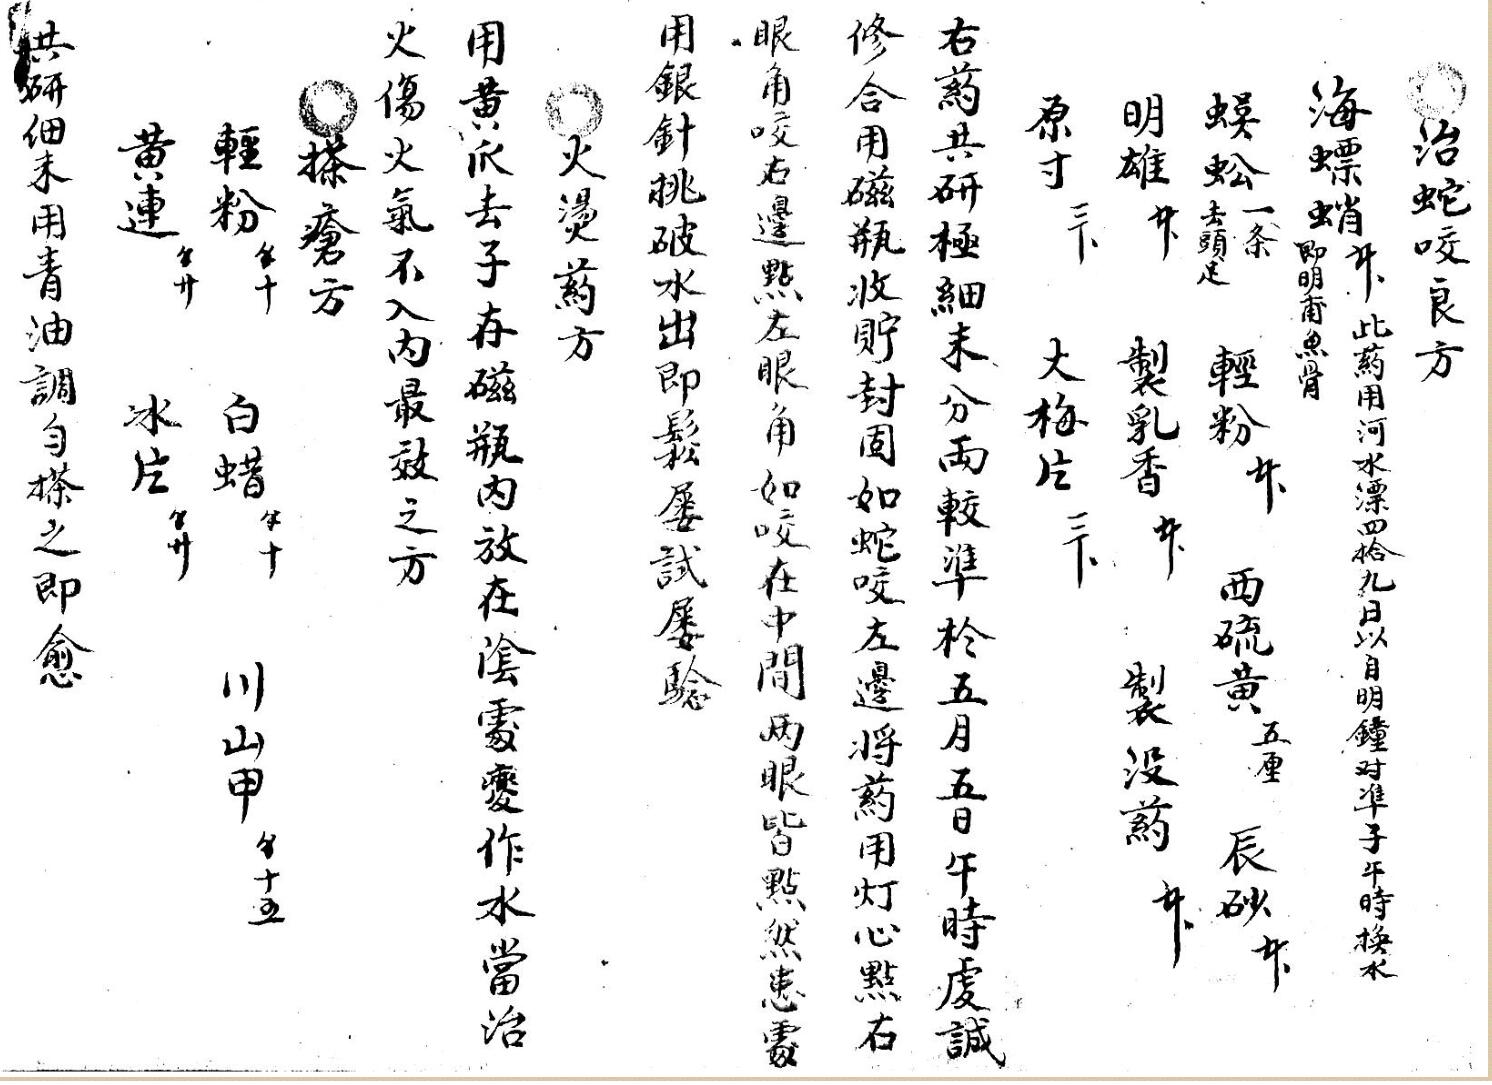 治蛇咬良方
海螵蛸 此葯用河水漂四拾九日以自明鐘对準子午時換水
即明甫魚骨
蜈蚣一条去頭足 輕粉 西硫黄五厘 辰砂
明雄 製乳香 製没葯
原寸 大梅片
右葯共研極細末分両較準於五月五日午時虔誠
修合用磁瓶收貯封固如蛇咬左邊将葯用灯心點右
眼角咬右邊點左眼角如咬在中間两眼皆點然患處
用銀針挑破水出即鬆屡試屡騐
火燙葯方
用黄瓜去子存磁瓶内放在陰處變作水當治
火傷火氣不入内最效之方
搽瘡方
輕粉 白蜡 川山甲
黄連 冰片
共研细末用青油調匀搽之即愈